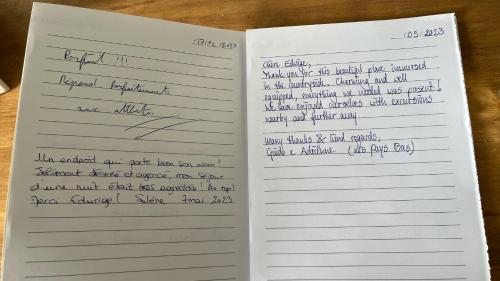 Parfait !!!
Répond Parfaitement
aux attentes
Un endroit qui porte bien son nom !
Joliment décoré et agencé, mon séjour
d'une nuit était très agréable ! Au top !
Edwige ! Solène 7 mai 2023
/05/2023
Chère Edwige,
Thank you for this beautiful place immersed
in the countryside. Charming and well
equipped, everything we needed was present !
We have enjoyed ourselves with excursions
nearby and further away
Many thanks & kind regards,
Guido e (les Pays Bas)